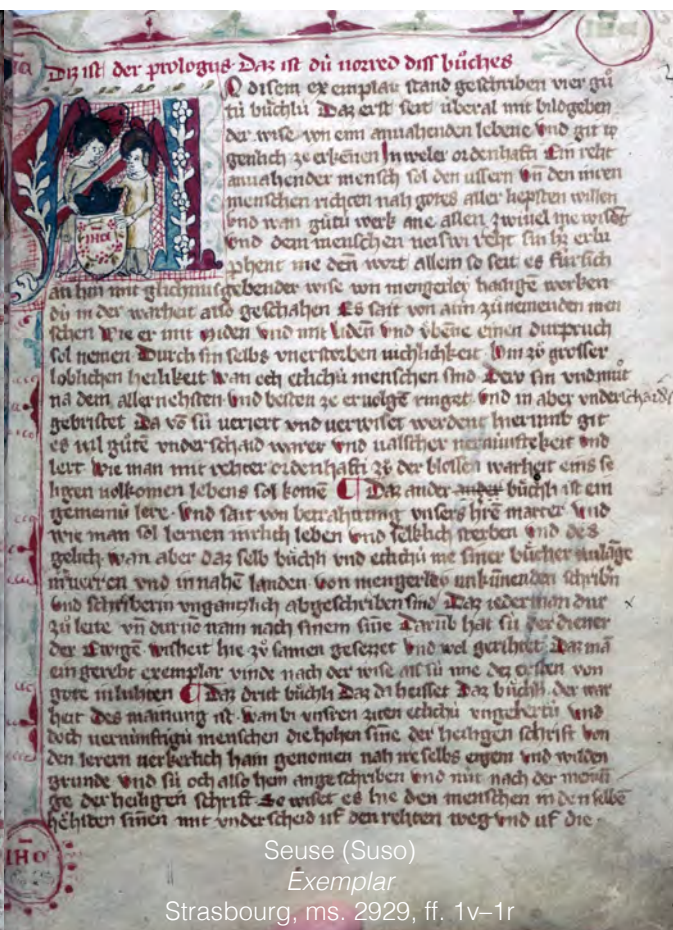 Diz ist der prologus. Daz ist dú vorred diss bůches
In disem exemplar stand geschriben vier gů
tú bůchlú Daz erst seit úberal mit bildgeben
der wise von eim anvahenden lebene vnd git to
genlich ze erkēnen Jn weler ordenhafti Ein reht
anvahender mensch sol den ussern vn̄ den inren
menschen richten nah gotes aller liepsten willen
vnd wan gůtú werk ane allen zwivel me wisēt
vnd dem menschen neiswi reht sin h̄z erlu
phent me denn wort allein so seit es fúrsich
an hin mit glichnusgebender wise von mengerley heilige werken
dú in der warheit also geschahen Es sait von aim zůnemenden men
schen Wie er mit miden vnd mit liden vnd v̊bene einen durpruch
sol nemen Durch sin selbs vnerstorben vichlichkeit hin zů grosser
loblichen heilikeit Wan och etlichú menschen sind Derv sin vnd můt
na dem aller nehsten vnd besten ze ervolgē ringet vnd in aber vnderschaides
gebristet Da vō sú veriert vnd verwiset werdent hier vmb git
es vil gůte vnderschaid warer vnd valscher vernúnftekeit vnd
lert wie man mit rehter ordenhafti zů der blossen warheit eins se
ligen volkomen lebens sol komē ¶ Daz ander ander bůchli ist ein
gemeinú lere vnd sait von betrahtung vnsers hr̄e marter vnd
wie man sol lernen inrlich leben vnd selklich sterben vnd des
gelich wan aber daz selb bůchli vnd etlichú me siner bůcher nu lāge
in verren vnd in nahē landen von mengerley unkúnnenden schribn̄
vnd schriberin vngantzlich abgeschriben sind Daz ieder man dur
zů leite vn̄ dur vō nam nach sinem sine Darūb hat sú der diener
der Ewigē wisheit hie zů samen gesetzet vnd wol gerihtet Daz mā
ein gereht exemplar vinde nach der wise als sú ime dez ersten von
gote in luhten ¶ Daz drit bůchli Daz da heisset Daz bůchli der war
heit des mainung ist wan bi vnsren ziten etlichú vngelertú vnd
doch vernúnftigú menschen die hohen sine der heiligen schrift von
den lerern verkerlich hain genomen nah ire selbs eigem vnd wilden
grunde vnd sú och also hein angeschriben vnd nút nach der meinū
ge der heiligen schrift So wiset es hie den menschen in den selbē
hehsten sinen mit vnderscheid uf den rehten weg vnd uf die
IHC
IHC
Seuse (Suso)
Exemplar
Strasbourg, ms. 2929, ff. 1v–1r